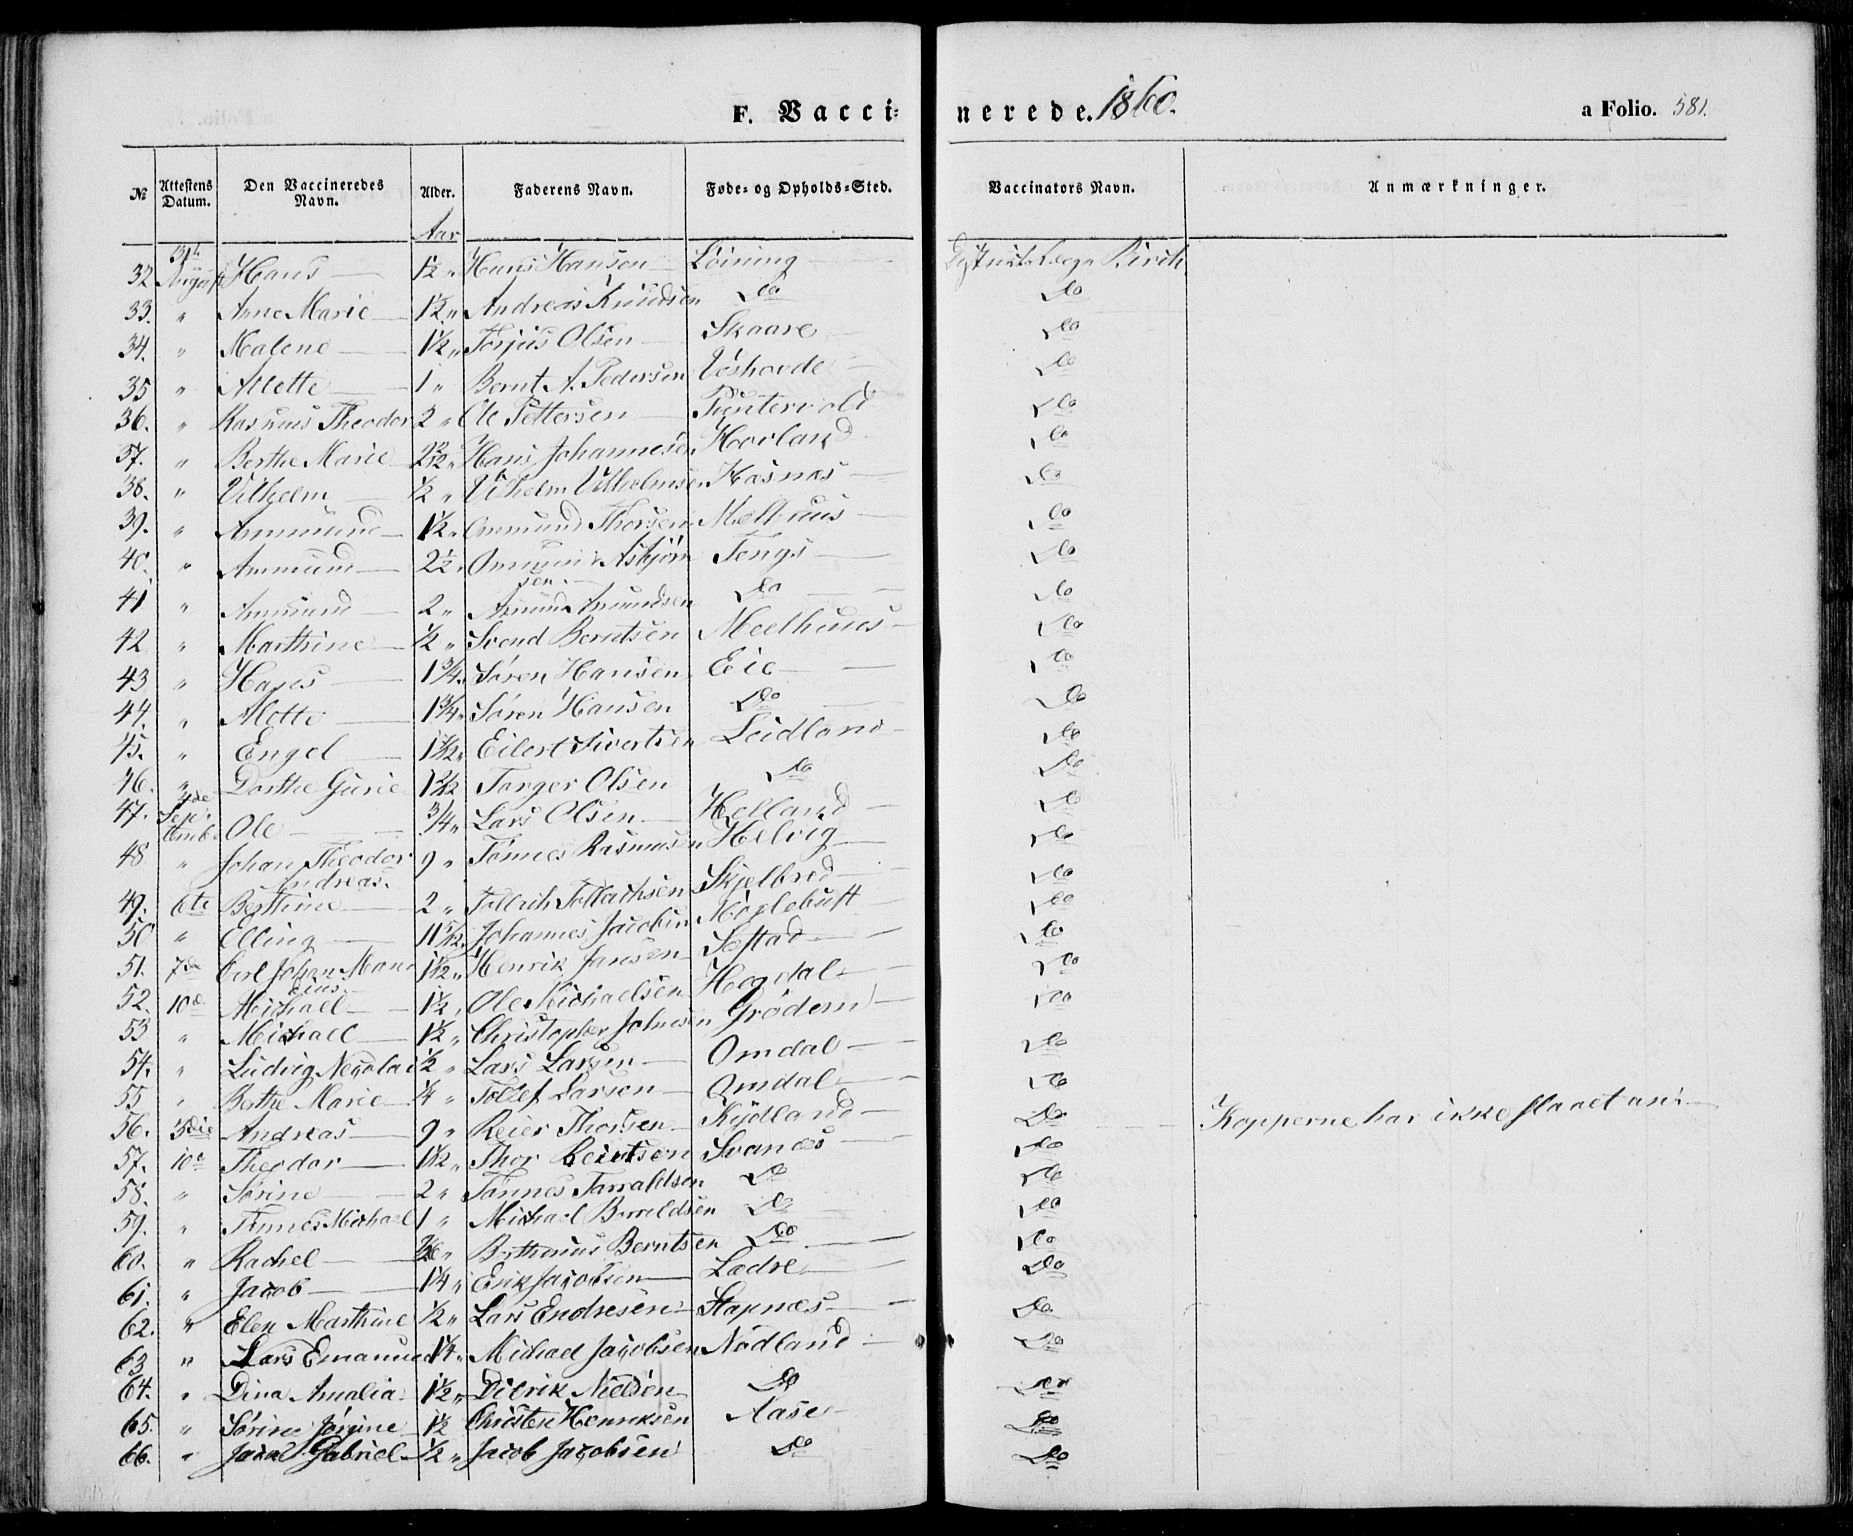 F. Vacci=
nerede. 1860.
a Folio. 581.
№ Attestens Datum. Den Vaccineredes Navn. Alder. Faderens Navn. Føde- og Opholds-Sted. Vaccinators Navn. Anmærkninger.
Aar
32 31te August Hans 1½ " Hans Hansen Loining Birch
33. " Anne Marie 1½ " Andreas Knudsen Do Do
34. " Malene 1½ " Torjus Olsen Skaare Do
35 " Allette 1 " Bernt A. Pedersen Veshovde Do
36. " Rasmus Theodor 2 " Ole Pettersen Puntervold Do
37. " Berthe Marie Hans Johannesen Hovland Do
38. " Vilhelm ½ " Vilhelm Vilhelmsen Hosnæs Do
39. " Ammund 1½ " Ommund Thorsen Melhuus Do
40. " Ammund 2½ " Askjørn Tengs Do
sen.
41 " Ammund 2 " Amund Amundsen Do Do
42 " Marthine ½ " Svend Berntsen Meelhuus Do
43 " Hans 1¾ " Søren Hansen Eie Do
44. " Mette 1¾ " Søren Hansen Do Do
45. " Engel Eilert Sivertsen Leidland Do
46. " Dorthe Gurie Torger Olsen Do Do
47. Septemb. Ole ¾ " Lars Olsen Helland Do
48 " Johan Theodor 9 " Tønnes Rasmusen Helvig Do
Andreas.
49. 6te Berthine 2 " Tollach Tollachsen Skjelbred Do
50 " Elling Johannes Jacobsen Do
51. 7de Carl Johan Henrik Jansen Sestad Do
52. 10de Michael 1½ " Ole Michaelsen Hegdal Do
53 " Michael 1½ " Christopher Johnsen Grødem Do
54. " Ludvig Nicolai ½ " Lars Larsen Omdal Do
55 " Berthe Marie ¼ " Tollef Larsen Omdal Do
56. Andreas 9 " Reier Thorsen Kydland Do Kopperne har ikke slaaet an.
57. 10de Theodor Thor Berntsen Svanæs Do
58. " Sørine 2 " Tønnes Torraldsen Do Do
59. " Tønnes Michael 1 " Michael Do Do
60. " Rachel Berntsen Do Do
61. " Jacob 1¼ " Erik Jacobsen Lædre Do
62. " Elen Marthine ½ " Lars Endresen Stapnæs Do
63 " Lars Emanuel 1¼ " Michael Jacobsen Nodland Do
64. " Dina Amalia 1½ " Didrik Nielsen Do Do
65. " Sørine Jørgine 1½ Christen Henriksen Aase Do
66. " Jacob Gabriel ½ " Jacob Jacobsen Do Do